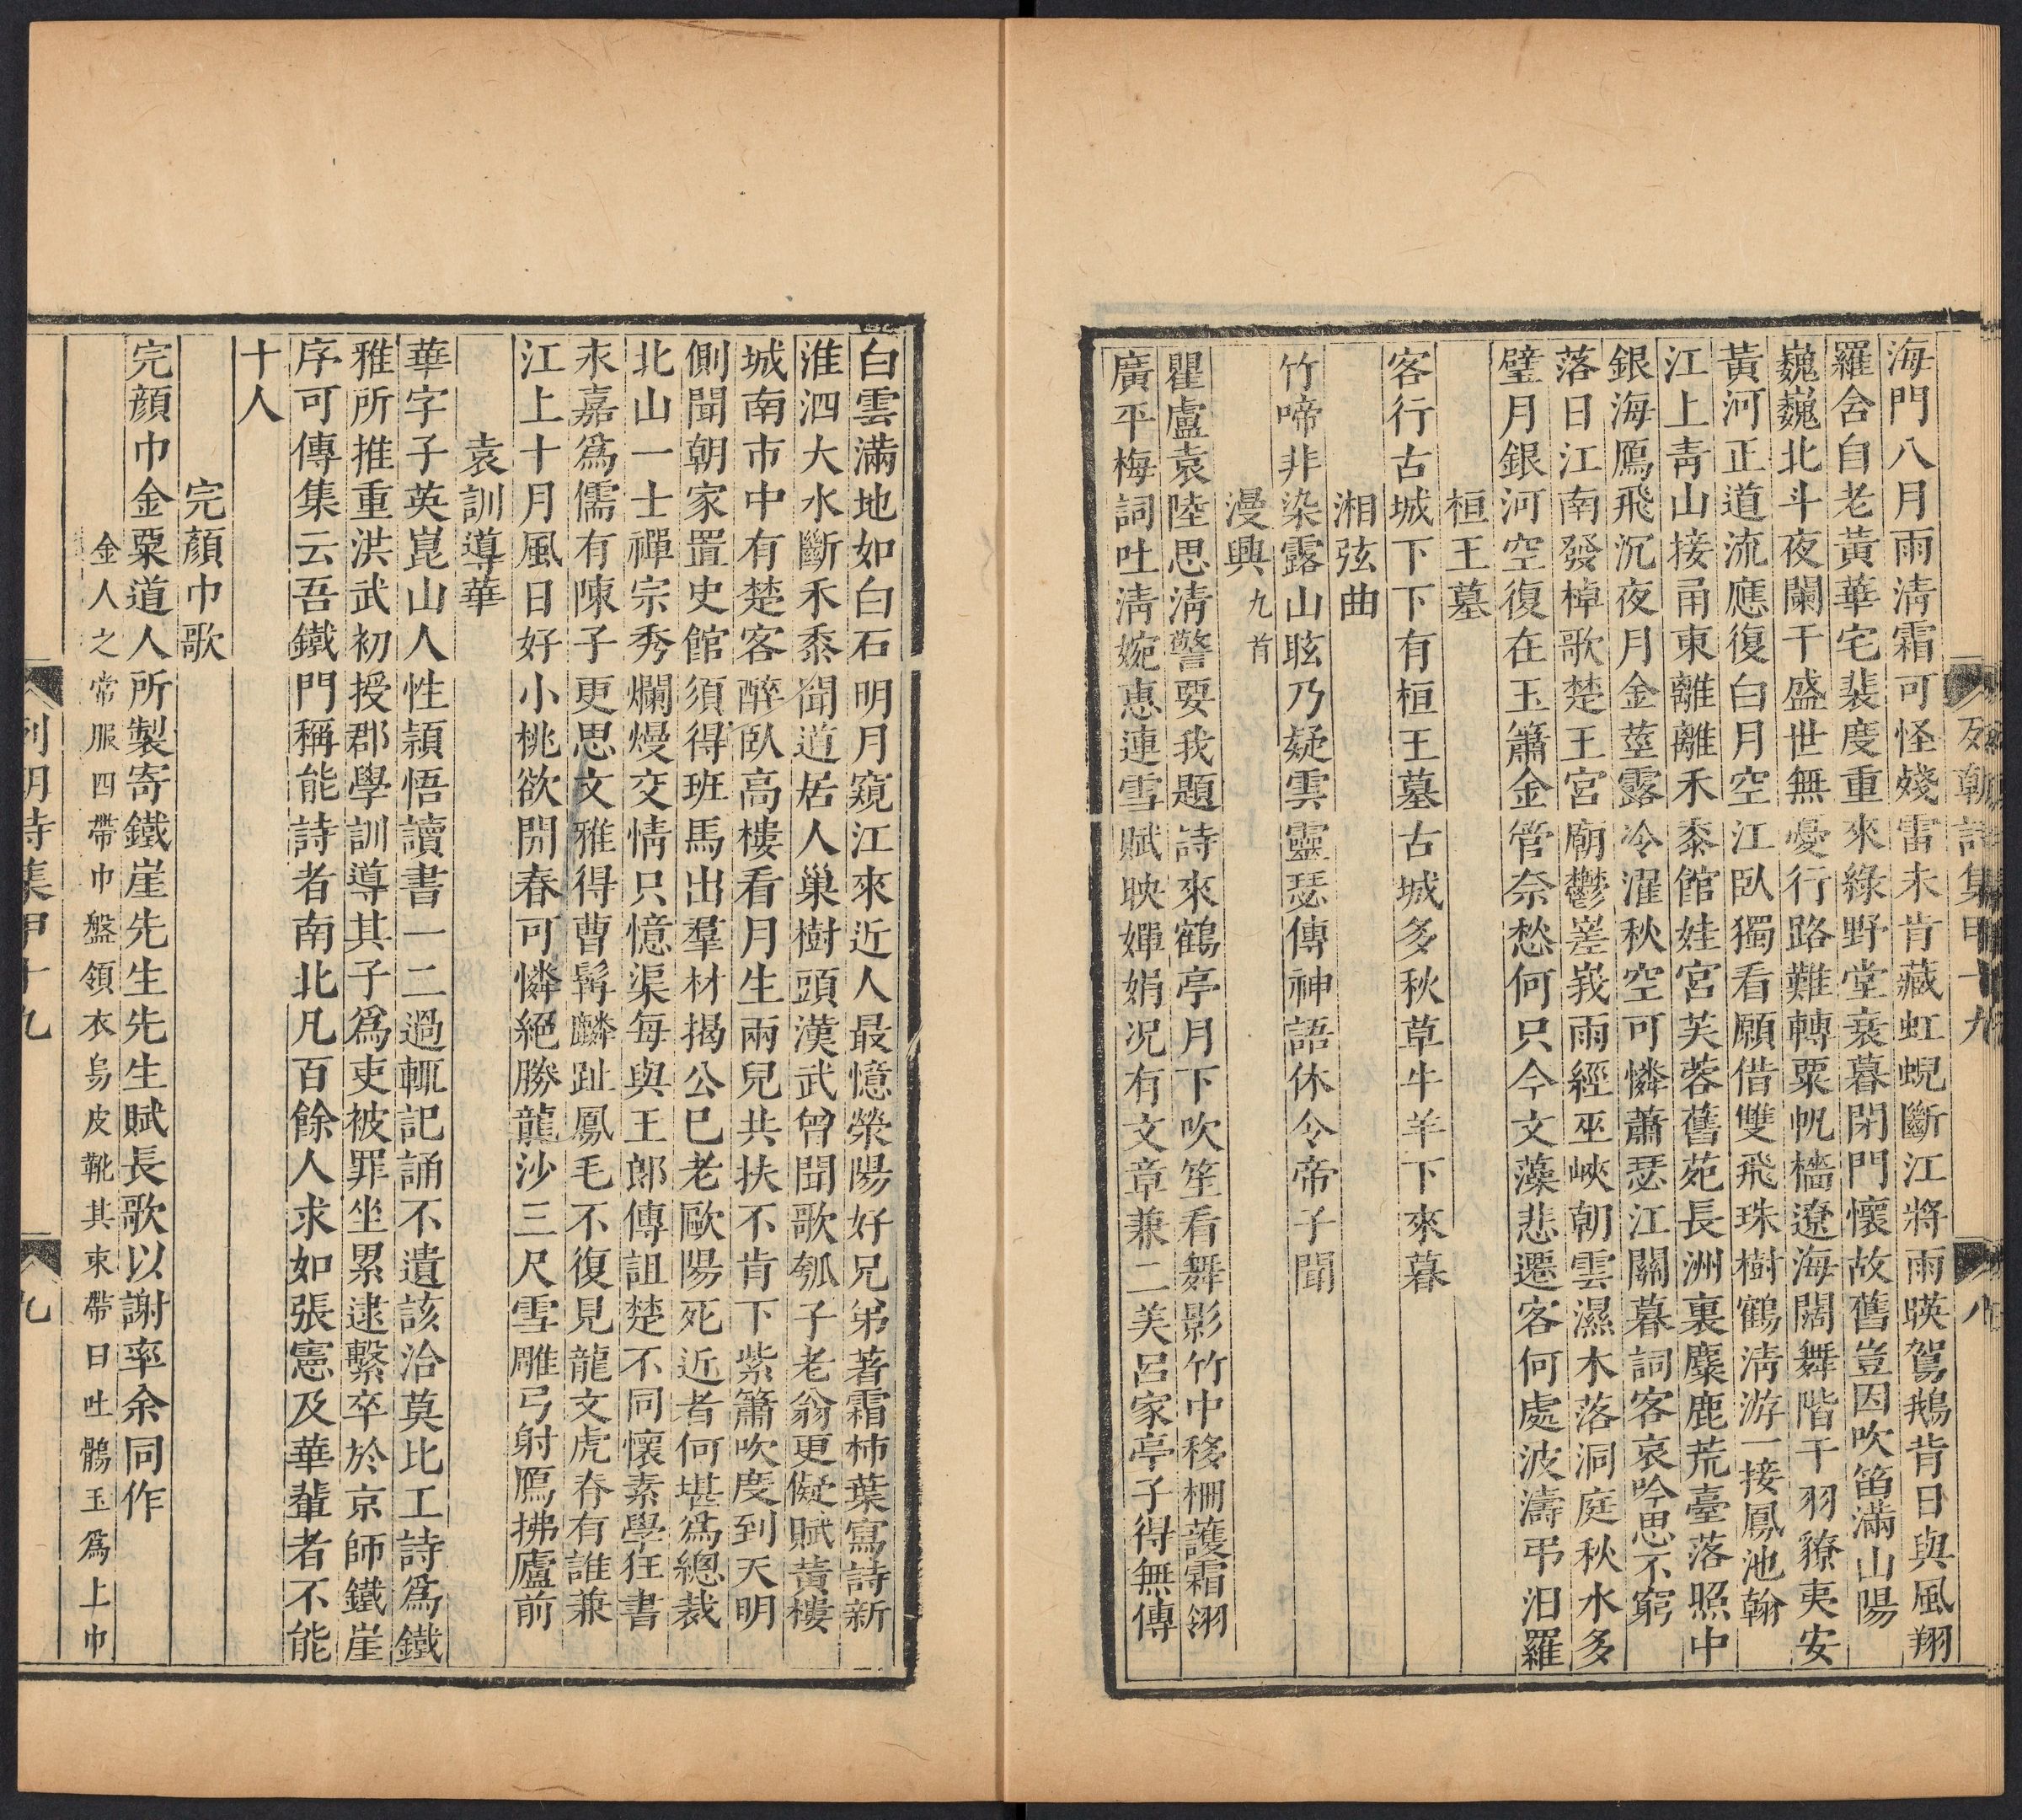 列朝詩集甲十九　八
海門八月雨淸霜可怪殘雷未肯藏虹蜺斷江將雨暎駕鵝背日與風翔
羅含自老黃華宅裴度重來綠野堂衰暮閉門懷故舊豈因吹笛滿山陽
巍巍北斗夜闌干盛世無憂行路難轉粟帆檣遼海闊舞階干羽獠夷安
黃河正道流應復白月空江臥獨看願借雙飛珠樹鶴淸游一接鳳池翰
江上靑山接甬東離離禾黍館娃宮芙蓉舊苑長洲裏麋鹿荒臺落照中
銀海鴈飛沉夜月金莖露冷濯秋空可憐蕭瑟江關暮詞客哀吟思不窮
落日江南發棹歌楚王宮廟鬱嵳峩雨經巫峽朝雲濕木落洞庭秋水多
璧月銀河空復在玉簫金管奈愁何只今文藻悲遷客何處波濤弔汨羅
桓王墓
客行古城下下有桓王墓古城多秋草牛羊下來暮
湘弦曲
竹啼非染露山眩乃疑雲靈瑟傳神語休令帝子聞
漫興九首
瞿盧袁陸思淸警要我題詩來鶴亭月下吹笙看舞影竹中移柵護霜翎
廣平梅詞吐淸婉惠連雪賦映嬋娟况有文章兼二美呂家亭子得無傳
白雲滿地如白石明月窺江來近人最憶滎陽好兄弟著霜柿葉寫詩新
淮泗大水斷禾黍聞道居人巢樹頭漢武曾聞歌瓠子老翁更儗賦黃樓
城南市中有楚客醉臥高樓看月生兩兒共扶不肯下紫簫吹度到天明
側聞朝家置史館須得班馬出羣材揭公已老歐陽死近者何堪爲總裁
北山一士禪宗秀爛熳交情只憶渠每與王郞傳詛楚不同懷素學狂書
永嘉爲儒有陳子更思文雅得曹髯麟趾鳳毛不復見龍文虎脊有誰兼
江上十月風日好小桃欲開春可憐絕勝龍沙三尺雪雕弓射鴈拂廬前
袁訓導華
華字子英崑山人性穎悟讀書一二過輒記誦不遺該洽莫比工詩爲鐵
雅所推重洪武初授郡學訓導其子爲吏被罪坐累逮繫卒於京師鐵崖
序可傳集云吾鐵門稱能詩者南北凡百餘人求如張憲及華輩者不能
十人
完顏巾歌
完顏巾金粟道人所製寄鐵崖先生先生賦長歌以謝率余同作
金人之常服四帶巾盤領衣烏皮靴其束帶曰吐鶻玉爲上巾
列朝詩集甲十九　九